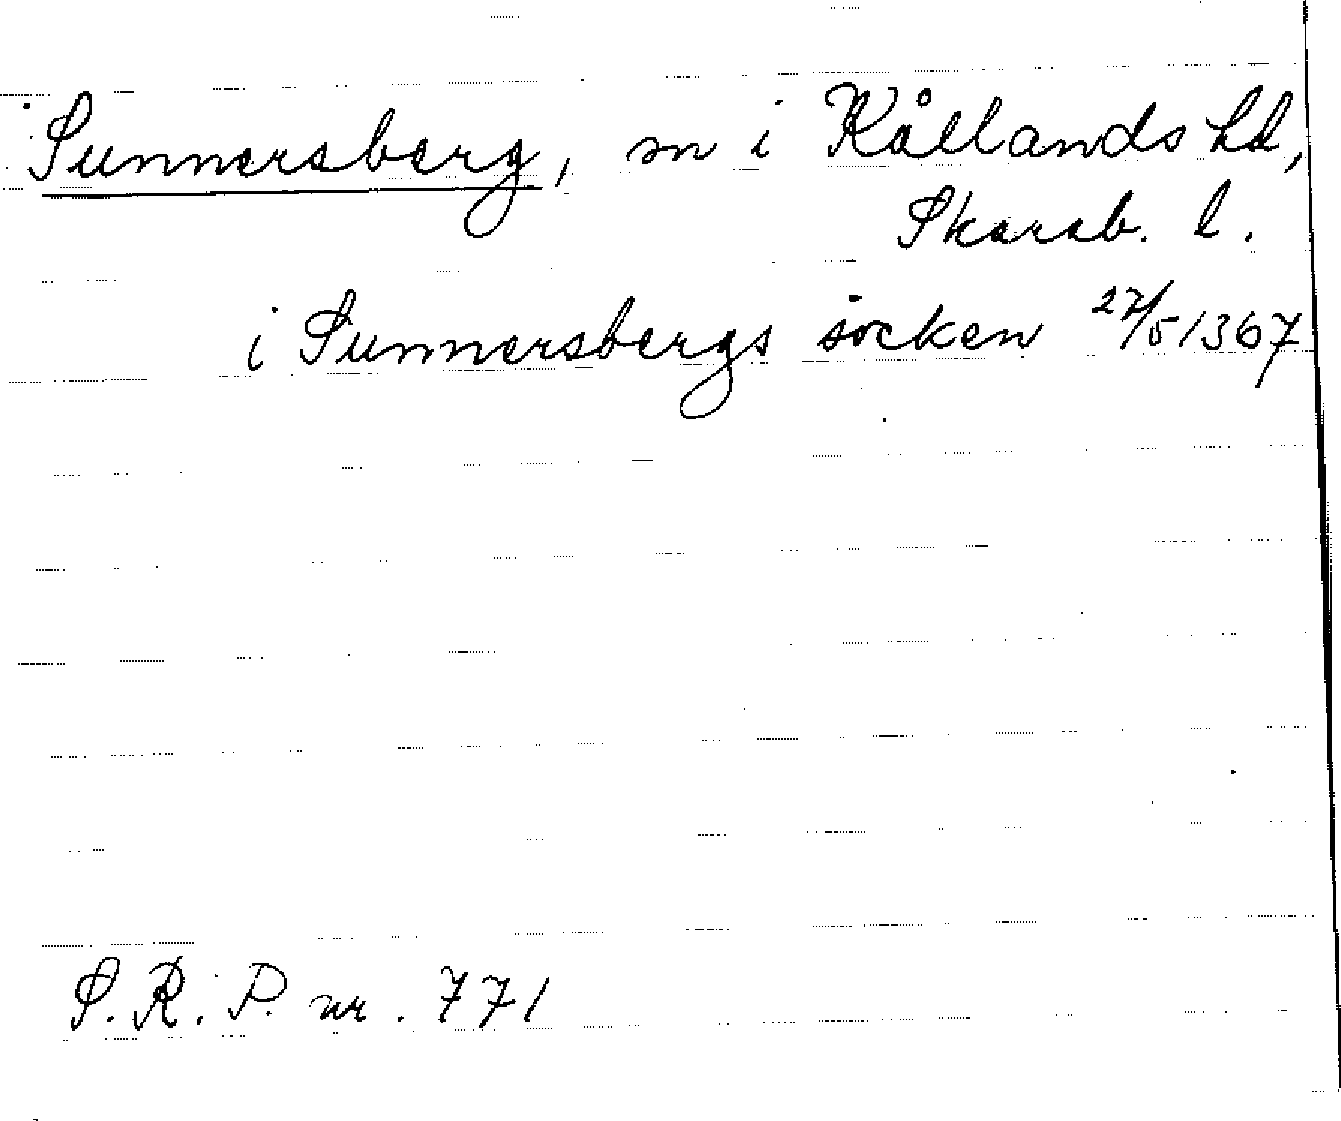 Sunnersberg, sn i Kållands hd,
Skarab. l.
i Sunnersbergs socken 27/5 1367
S.R.P. nr. 771